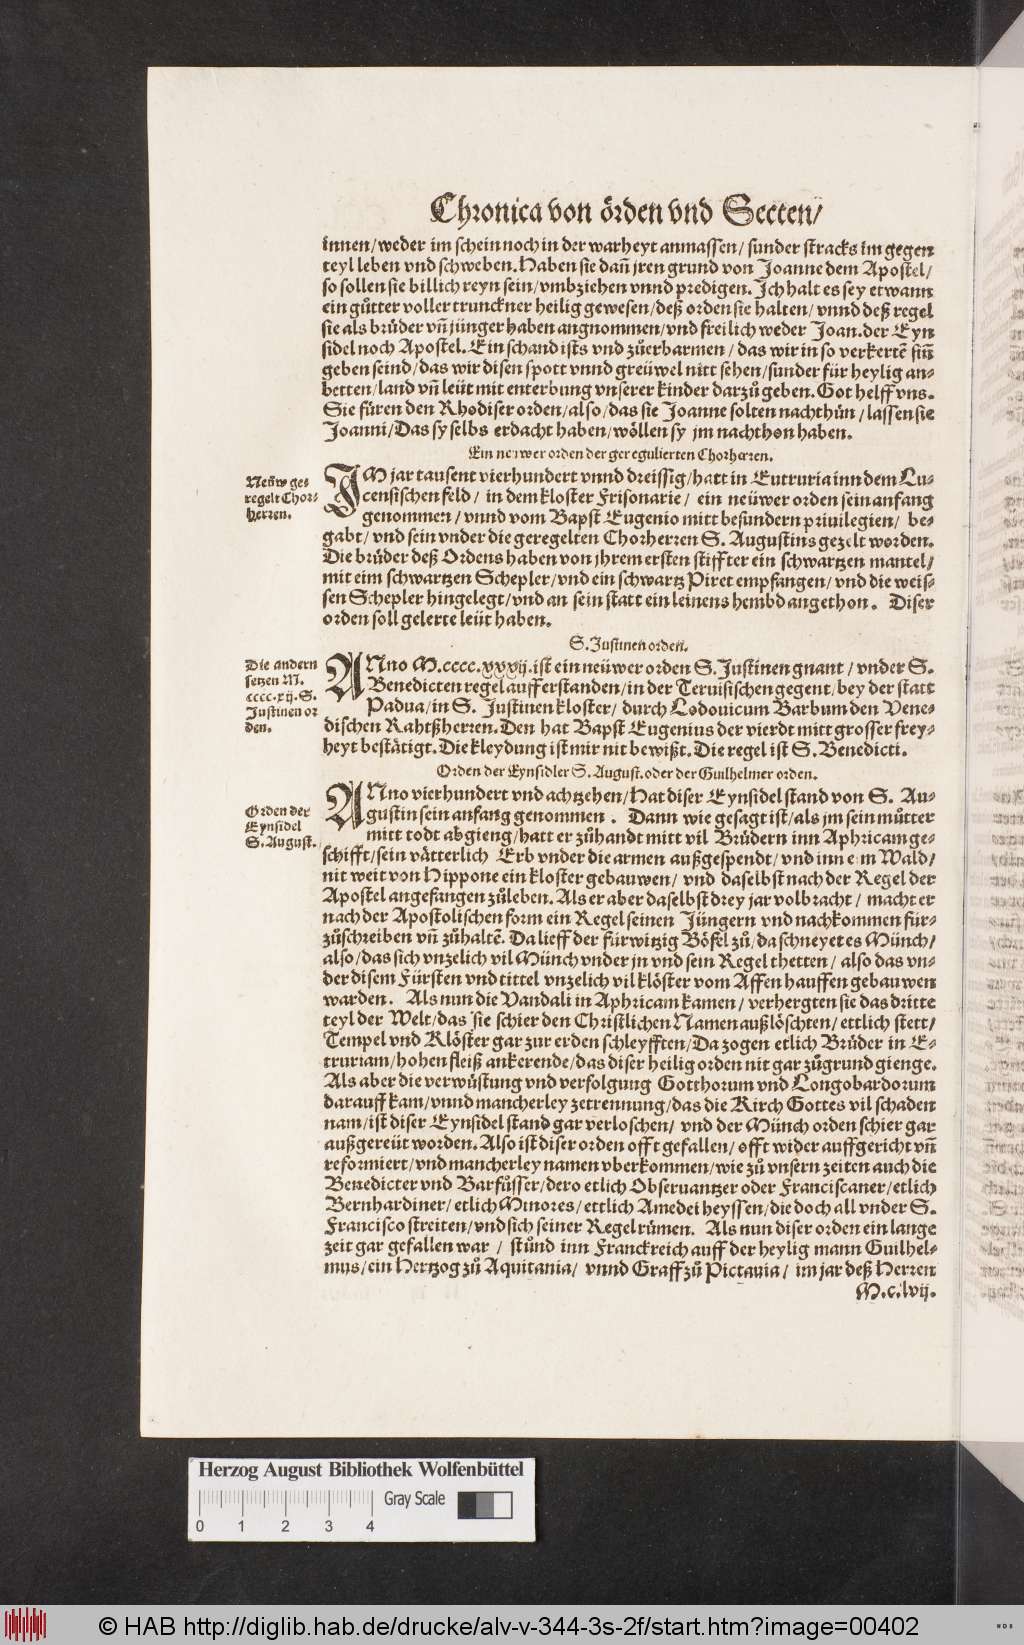 Chronica von örden vnd Secten/
innen/weder im schein noch in der warheyt anmassen/ sunder stracks im gegen
teyl leben vnd schweben. Haben sie dañ jren grund von Joanne dem Apostel/
so sollen sie billich reyn sein/vmbziehen vnnd predigen. Jch halt es sey etwann
ein gůtter voller trunckner heilig gewesen/deß orden sie halten/ vnnd deß regel
sie als brůder vñ jünger haben angnommen/vnd freilich weder Joan. der Eyn
sidel noch Apostel. Ein schand ists vnd zůerbarmen/ das wir in so verkertē siñ
geben seind/das wir disen spott vnnd greüwel nitt sehen/sunder für heylig an-
betten/land vñ leüt mit enterbung vnserer kinder darzů geben. Got helff vns.
Sie füren den Rhodiser orden/also/das sie Joanne solten nachthůn/lassen sie
Joanni/Das sy selbs erdacht haben/wöllen sy jm nachthon haben.
Ein neuwer orden der geregulierten Chorherren.
Neüw ge-
regelt Chor-
herren.
JM jar tausent vierhundert vnnd dreissig/hatt in Eutruria inn dem Lu-
censischen feld/ in dem kloster Frisonarie/ ein neüwer orden sein anfang
genommen/vnnd vom Bapst Eugenio mitt besundern priuilegien/ be-
gabt/vnd sein vnder die geregelten Chorherren S. Augustins gezelt worden.
Die brůder deß Ordens haben von jhrem ersten stiffter ein schwartzen mantel/
mit eim schwartzen Schepler/vnd ein schwartz Piret empfangen/ vnd die weis-
sen Schepler hingelegt/vnd an sein statt ein leinens hembd angethon. Diser
orden soll gelerte leüt haben.
S. Justinen orden.
Die andern
setzen M.
cccc.xij. S.
Justinen or
den.
ANno M.cccc.xxxij. ist ein neüwer orden S. Justinen gnant/vnder S.
Benedicten regel aufferstanden/in der Teruisischen gegent/bey der statt
Padua/in S. Justinen kloster/ durch Lodouicum Barbum den Vene-
dischen Rahtßherren. Den hat Bapst Eugenius der vierdt mitt grosser frey-
heyt bestätigt. Die kleydung ist mir nit bewißt. Die regel ist S. Benedicti.
Orden der Eynsidler S. August. oder der Guilhelmer orden.
Orden der
Eynsidel
S. August.
ANno vierhundert vnd achtzehen/Hat diser Eynsidel stand von S. Au-
gustin sein anfang genommen. Dann wie gesagt ist/als jm sein můtter
mitt todt abgieng/hatt er zůhandt mitt vil Brüdern inn Aphricam ge-
schifft/sein vätterlich Erb vnder die armen außgespendt/vnd inn eim Wald/
nit weit von Hippone ein kloster gebauwen/ vnd daselbst nach der Regel der
Apostel angefangen zůleben. Als er aber daselbst drey jar volbracht/ macht er
nach der Apostolischen form ein Regel seinen Jüngern vnd nachkommen für-
zůschreiben vñ zůhaltē. Da lieff der fürwitzig Böfel zů/da schneyet es Münch/
also/das sich vnzelich vil Münch vnder jn vnd sein Regel thetten/ also das vn-
der disem Fürsten vnd tittel vnzelich vil klöster vom Affen hauffen gebauwen
warden. Als nun die Vandali in Aphricam kamen/ verhergten sie das dritte
teyl der Welt/das sie schier den Christlichen Namen außlöschten/ettlich stett/
Tempel vnd Klöster gar zur erden schleyfften/Da zogen etlich Brüder in E-
truriam/hohen fleiß ankerende/das diser heilig orden nit gar zůgrund gienge.
Als aber die verwüstung vnd verfolgung Gotthorum vnd Longobardorum
darauff kam/vnnd mancherley zetrennung/das die Kirch Gottes vil schaden
nam/ist diser Eynsidel stand gar verloschen/ vnd der Münch orden schier gar
außgereüt worden. Also ist diser orden offt gefallen/ offt wider auffgericht vñ
reformiert/vnd mancherley namen vberkommen/wie zů vnsern zeiten auch die
Benedicter vnd Barfůsser/dero etlich Obseruantzer oder Franciscaner/etlich
Bernhardiner/etlich Minores/ettlich Amedei heyssen/die doch all vnder S.
Francisco streiten/vnd sich seiner Regel rümen. Als nun diser orden ein lange
zeit gar gefallen war/ stůnd inn Franckreich auff der heylig mann Guilhel-
mus/ein Hertzog zů Aquitania/ vnnd Graff zů Pictauia/ im jar deß Herren
M.c.lvij.
Herzog August Bibliothek Wolfenbüttel
Gray Scale
0 1 2 3 4
© HAB http://diglib.hab.de/drucke/alv-v-344-3s-2f/start.htm?image=00402